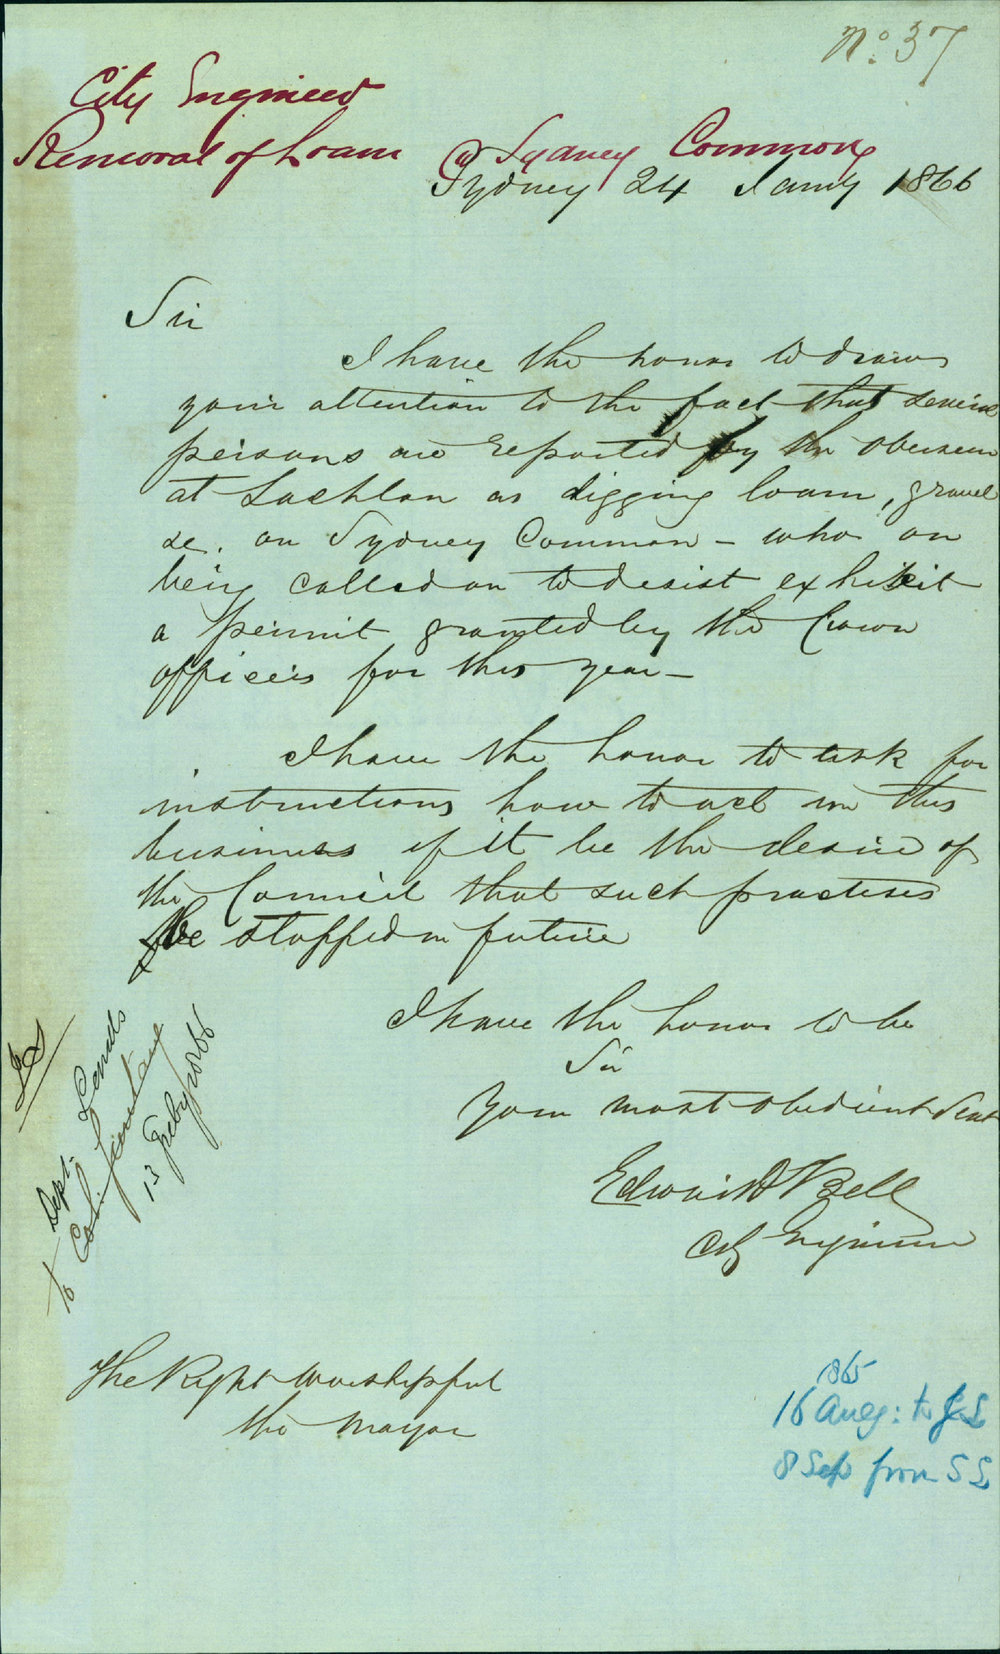 No. 37
City Engineer
Removal of Loam Sydney Common
Sydney 24 Jany 1866
Sir
I have the honor to draw
your attention to the fact that several
persons are reported by the overseer
at Lachlan as digging loam, gravel
&c. on Sydney Common - who on
being called on to desist exhibit
a permit granted by the Crown
officers for this year -
I have the honor to ask for
instructions how to act in this
business if it be the desire of
the Council that such practises
be stopped in future
I have the honor to be
Sir
Your most obedient Servt
Edward Bell
City Engineer
Dept. Lands
to Col. Secretary
13 Feby 1866
The Right Worshipful
the Mayor
1865
16 Aug: to S L
8 Sep from S L